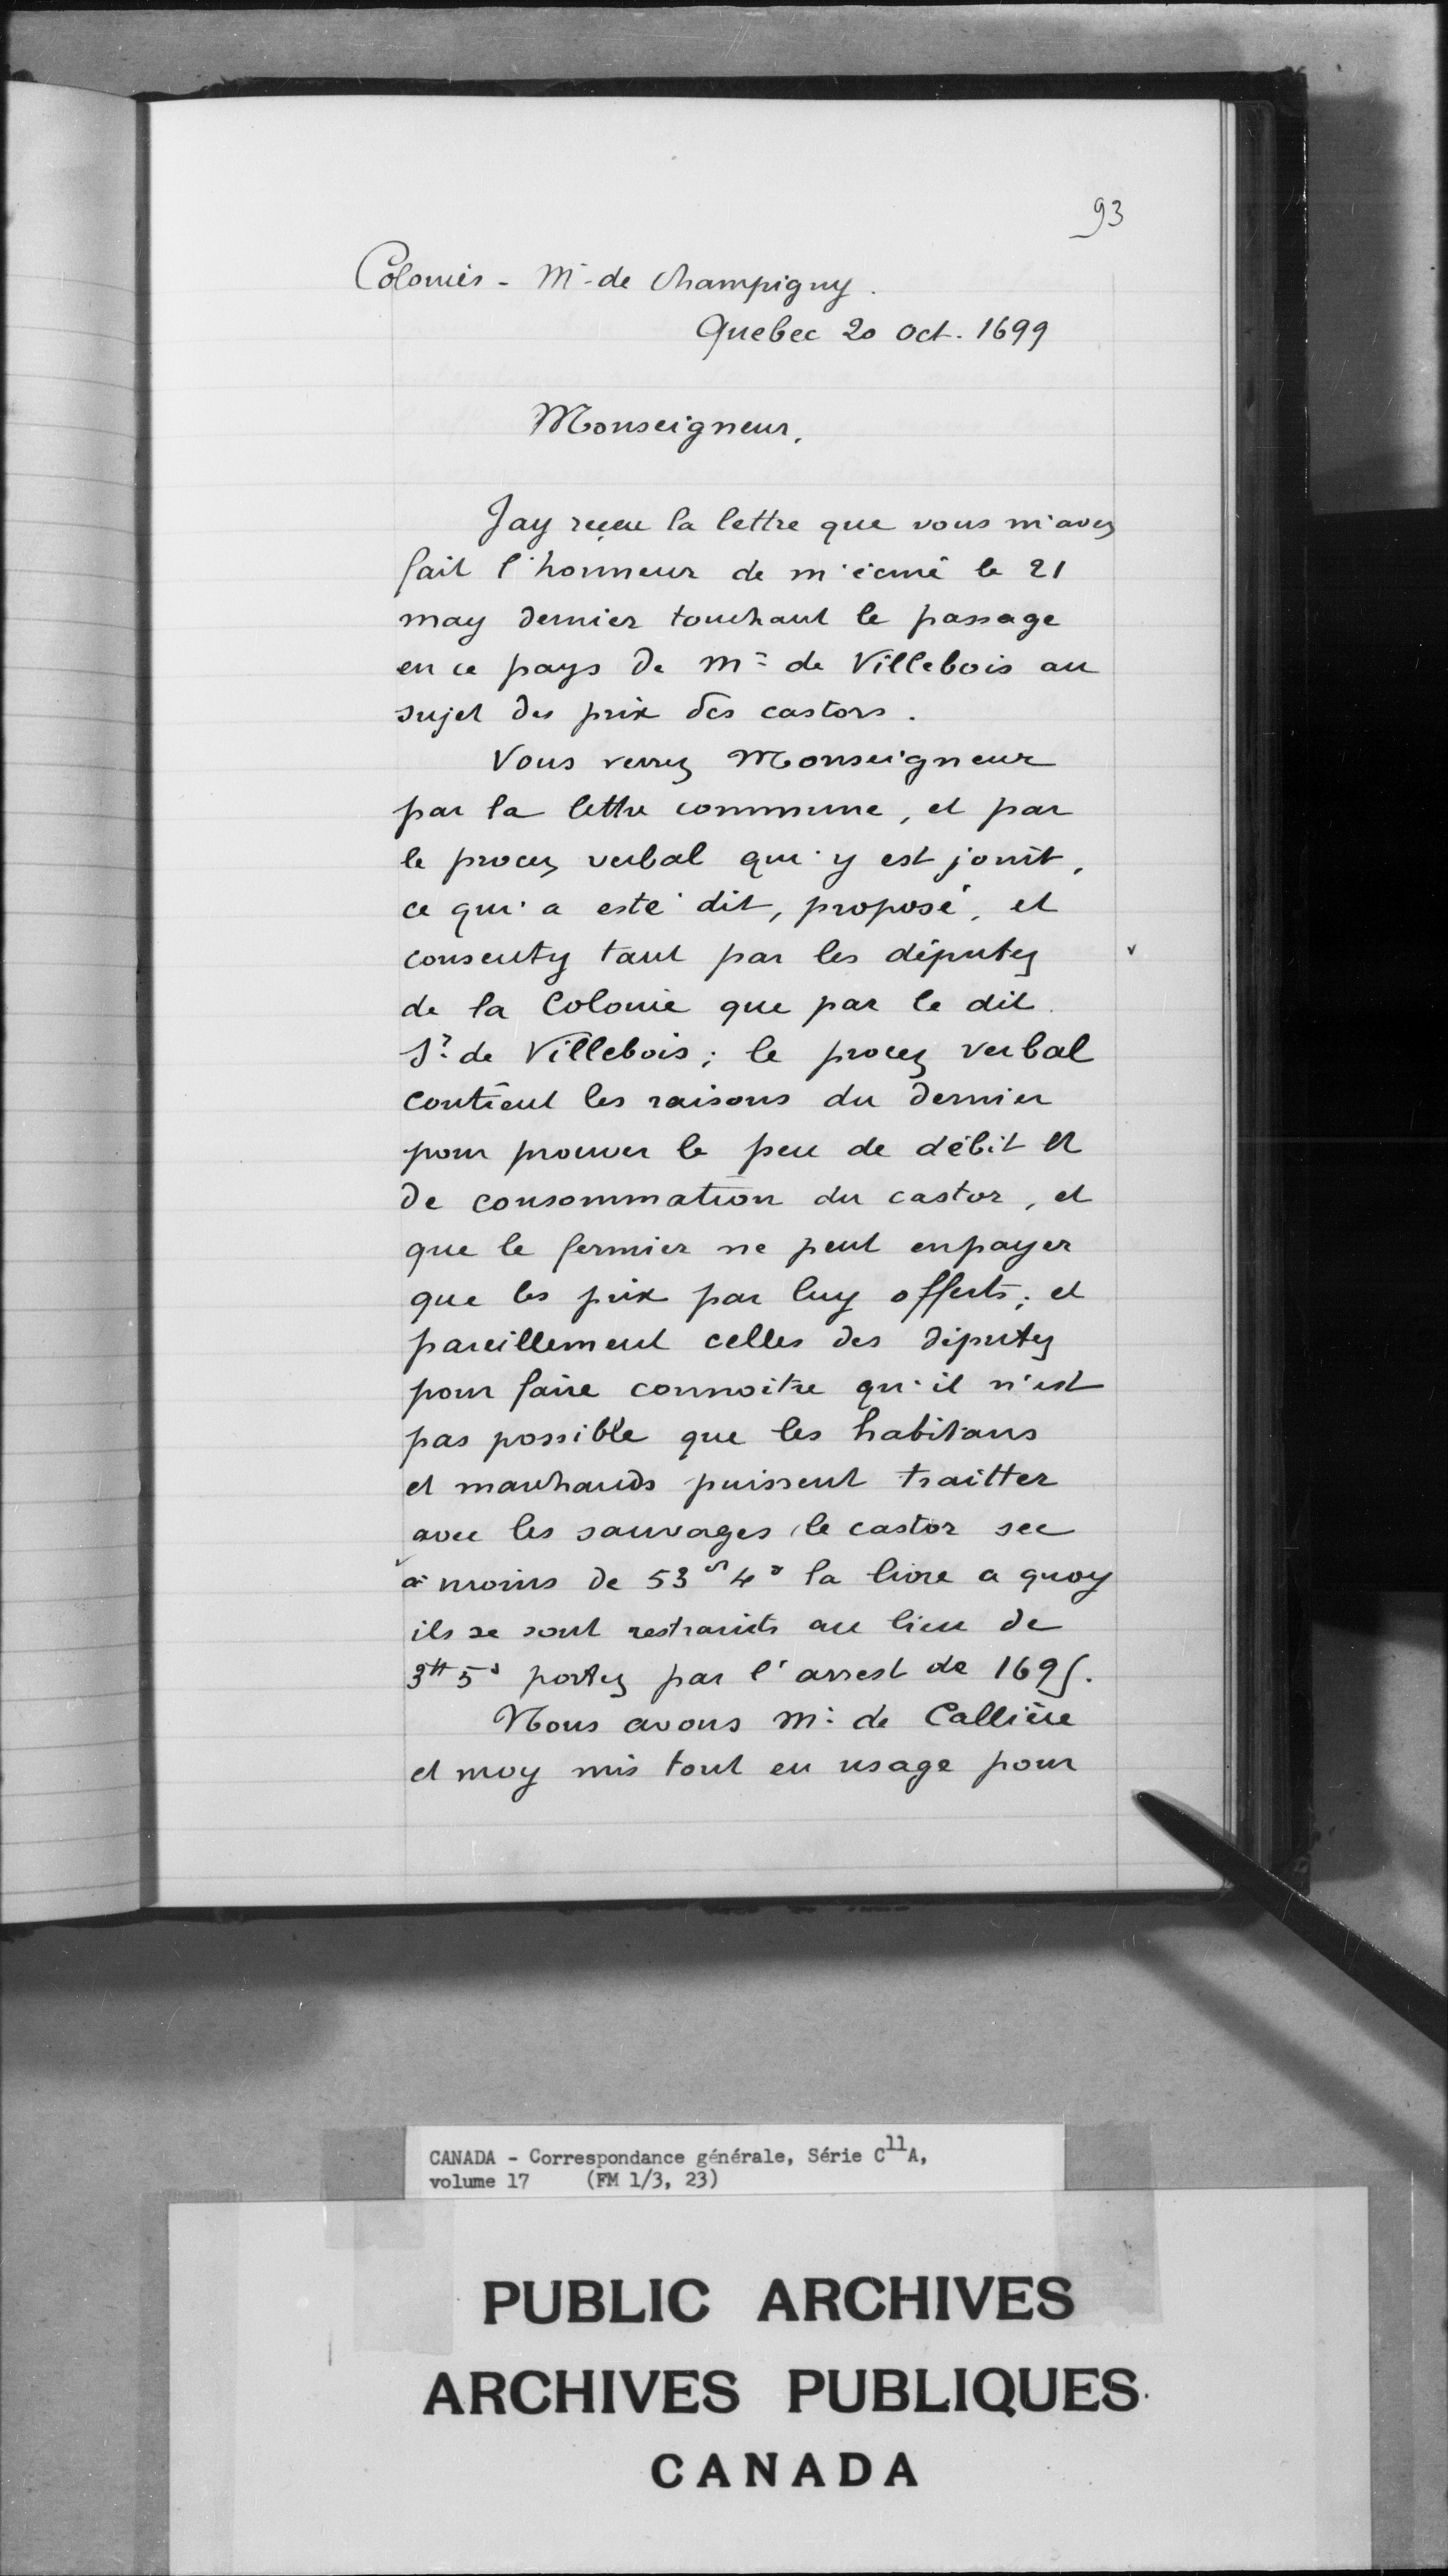 93
Colonies - Mr de Champigny.
Quebec 20 Oct. 1699
Monseigneur,
Jay reçeu la lettre que vous m'avez
fait l'honneur de m'écrire le 21
may dernier touchant le passage
en ce pays de Mr de Villebois au
sujet des prix des castors.
Vous verrez Monseigneur
par la lettre commune, et par
le procez verbal qui y est joinit,
ce qui a esté dit, proposé, et
consenty tant par les députez
de la Colonie que par le dit
Sr de Villebois; le procez verbal
contient les raisons du dernier
pour prouver le peu de débit et
de consommation du castor, et
que le fermier ne peut en payer
que les prix par luy offerts; et
pareillement celles des députez
pour faire connoitre qu'il n'est
pas possible que les habitans
et marchands puissent traitter
avec les sauvages le castor sec
à moins de 53s 4d la livre a quoy
ils se sont restraints au lieu de
3tt 5s portez par l'arrest de 1695.
Nous avons Mr de Callière
et moy mis tout en usage pour
CANADA - Correspondance générale, Série C11A,
volume 17 (FM 1/3, 23)
PUBLIC ARCHIVES
ARCHIVES PUBLIQUES
CANADA